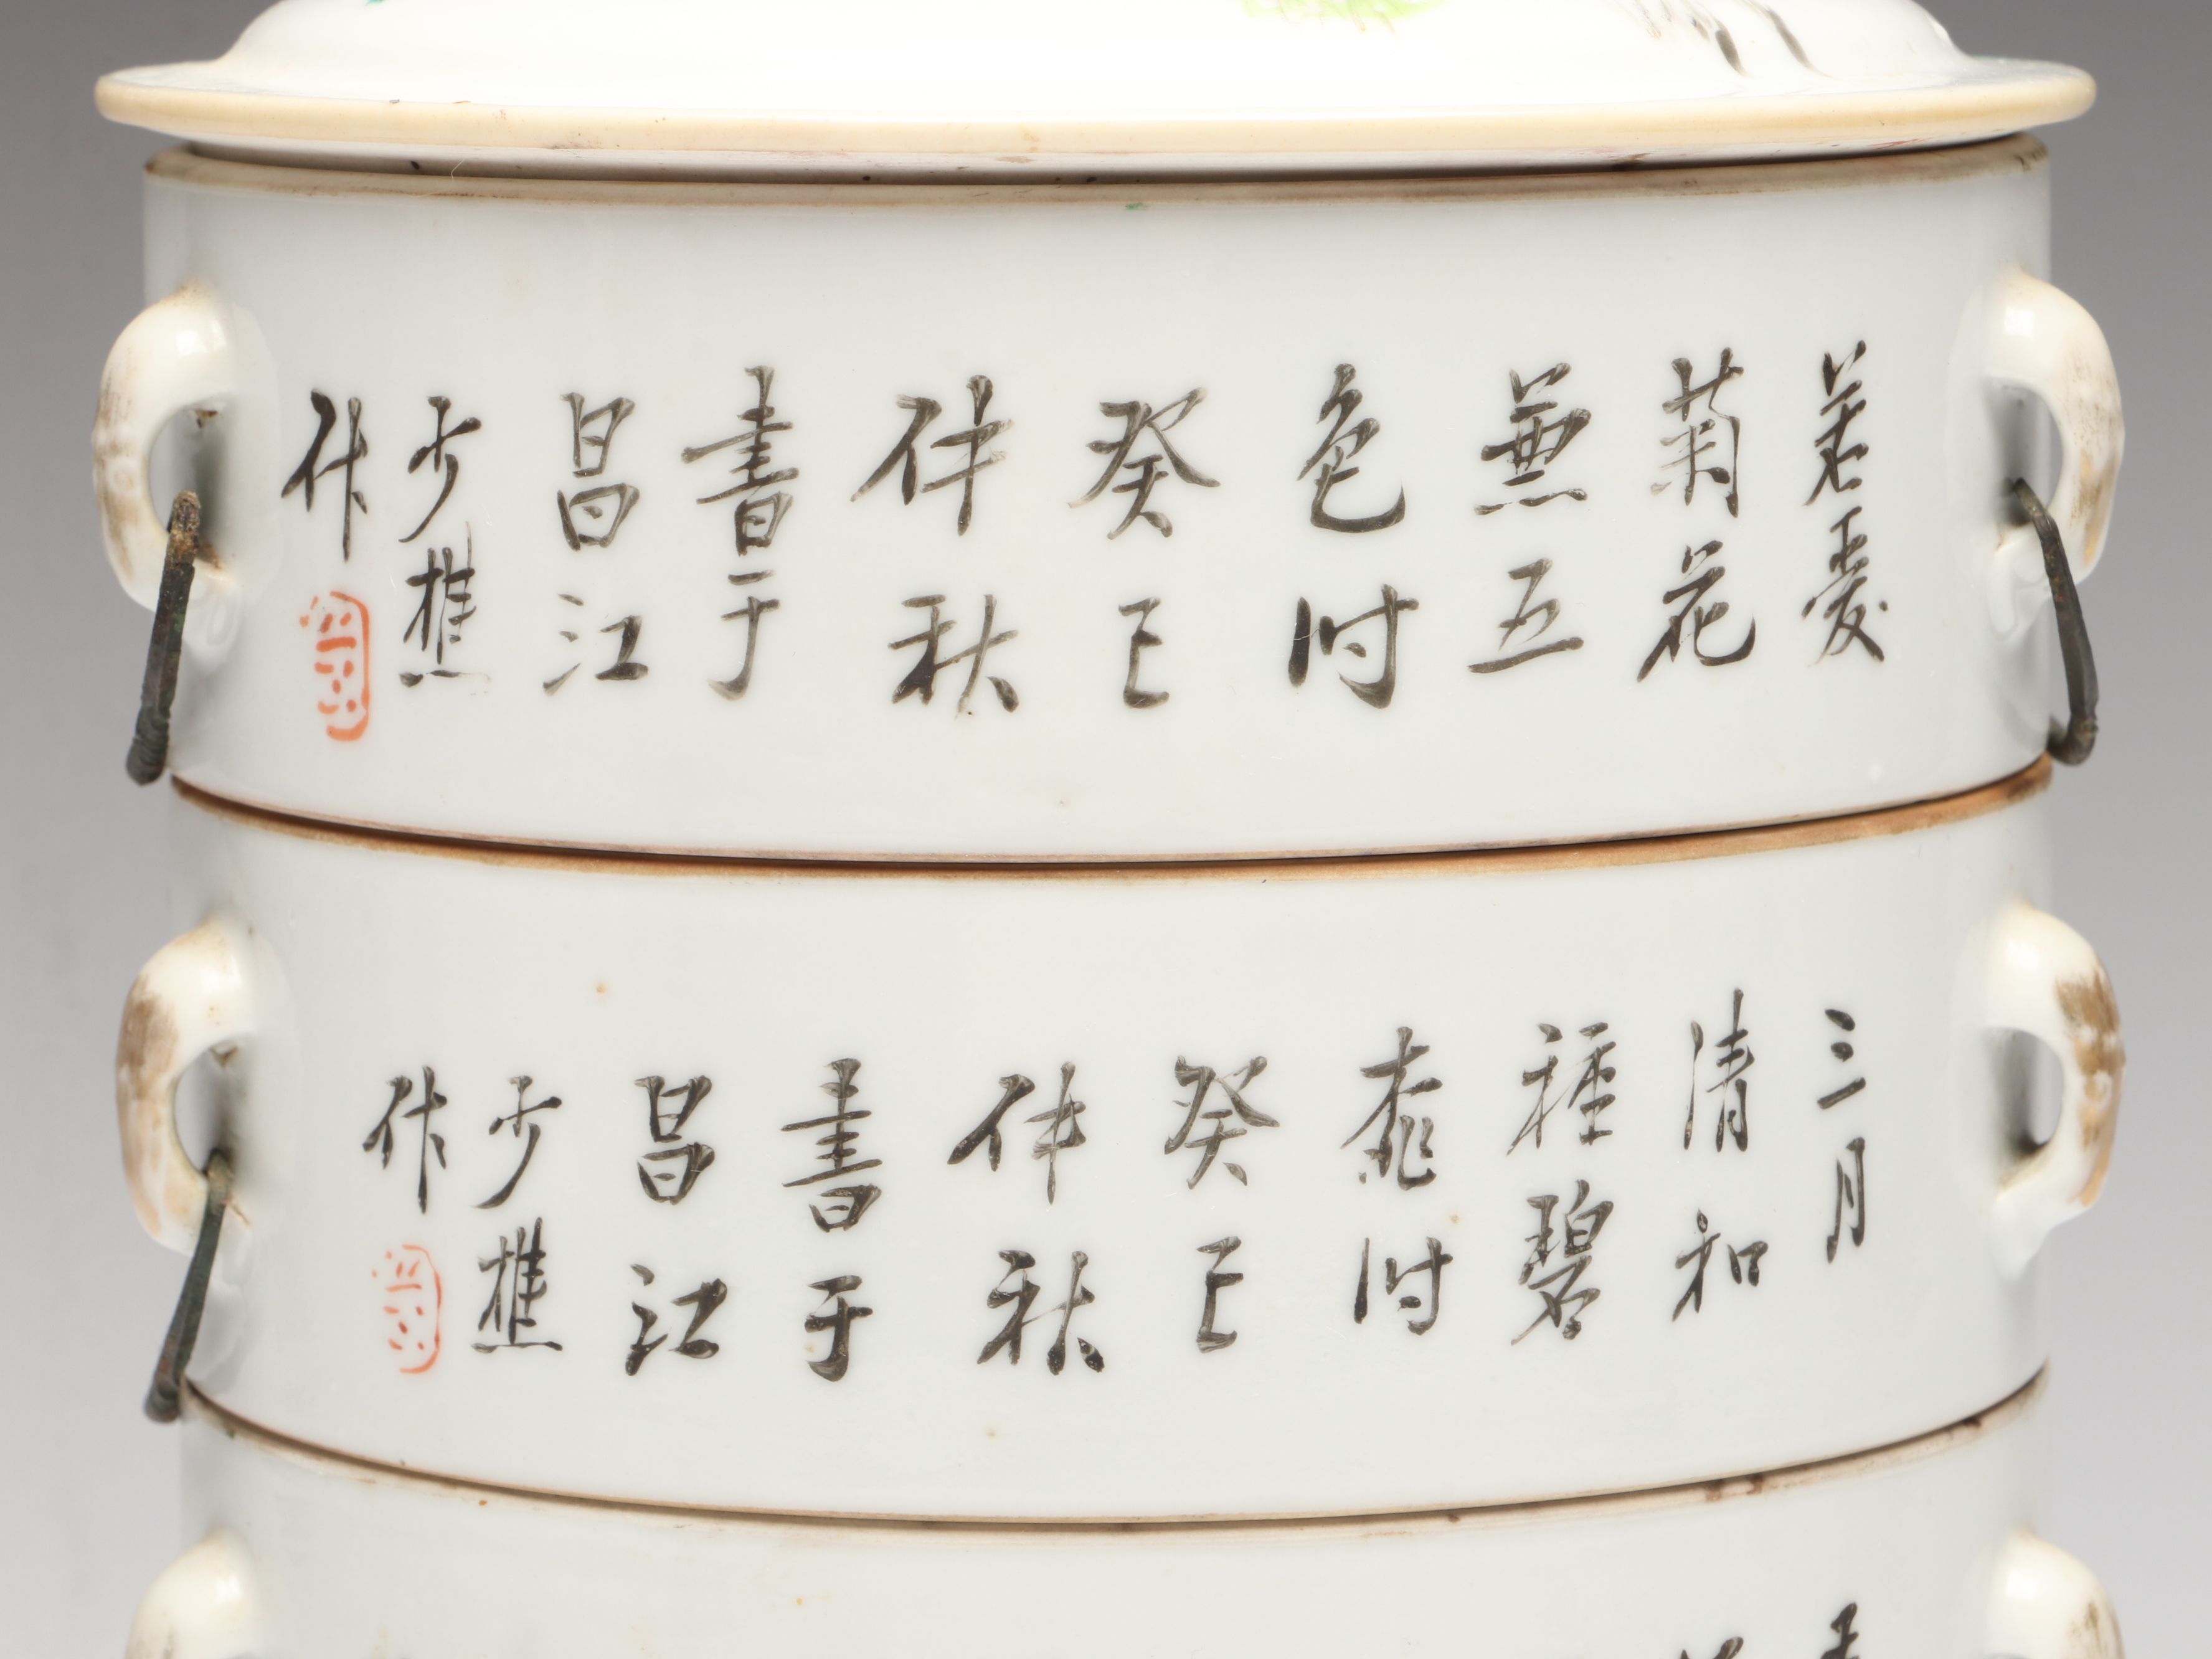 若愛
菊花
無五
色时
癸巳
仲秋
書于
昌江
少樵
作
三月
清和
種碧
桃时
癸巳
仲秋
書于
昌江
少樵
作